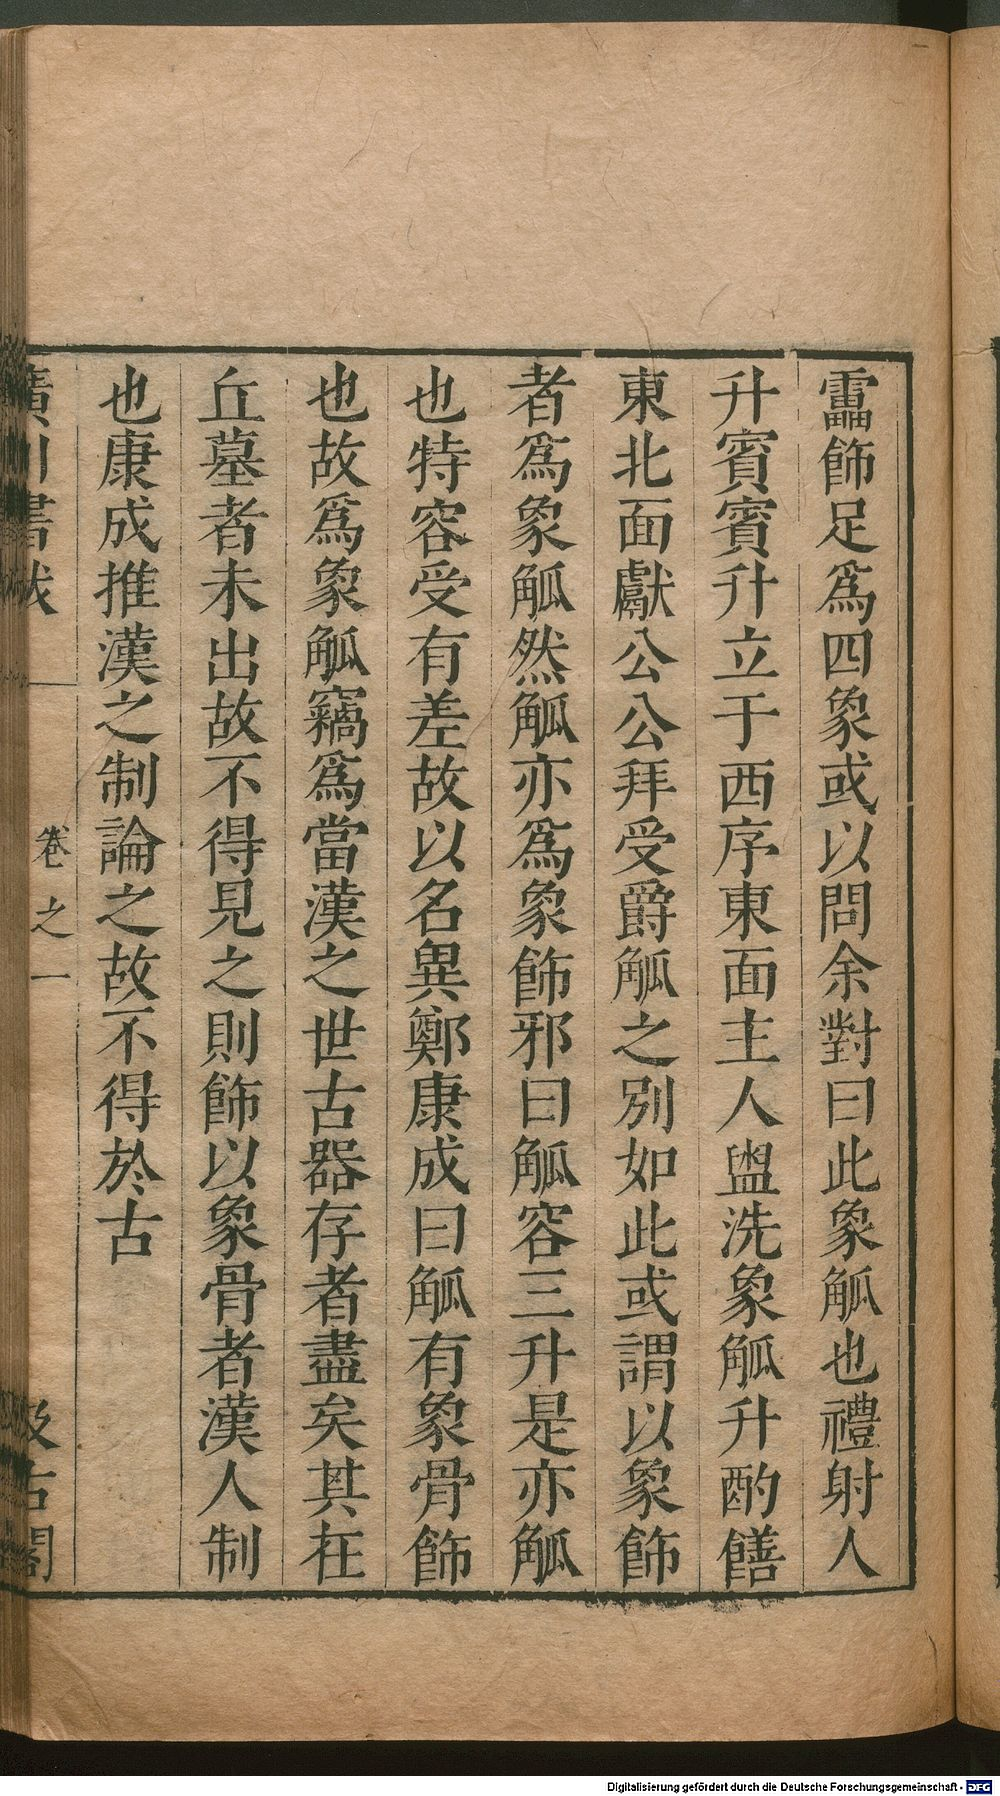 靁飾足爲四象或以問余對曰此象觚也禮射人
升賓賓升立于西序東面主人盥洗象觚升酌饍
東北面獻公公拜受爵觚之別如此或謂以象飾
者爲象觚然觚亦爲象飾邪曰觚容三升是亦觚
也特容受有差故以名異鄭康成曰觚有象骨飾
也故爲象觚竊爲當漢之世古器存者盡矣其在
丘墓者未出故不得見之則飾以象骨者漢人制
也康成推漢之制論之故不得於古
廣川書跋 卷之一 汲古閣
Digitalisierung gefördert durch die Deutsche Forschungsgemeinschaft - DFG